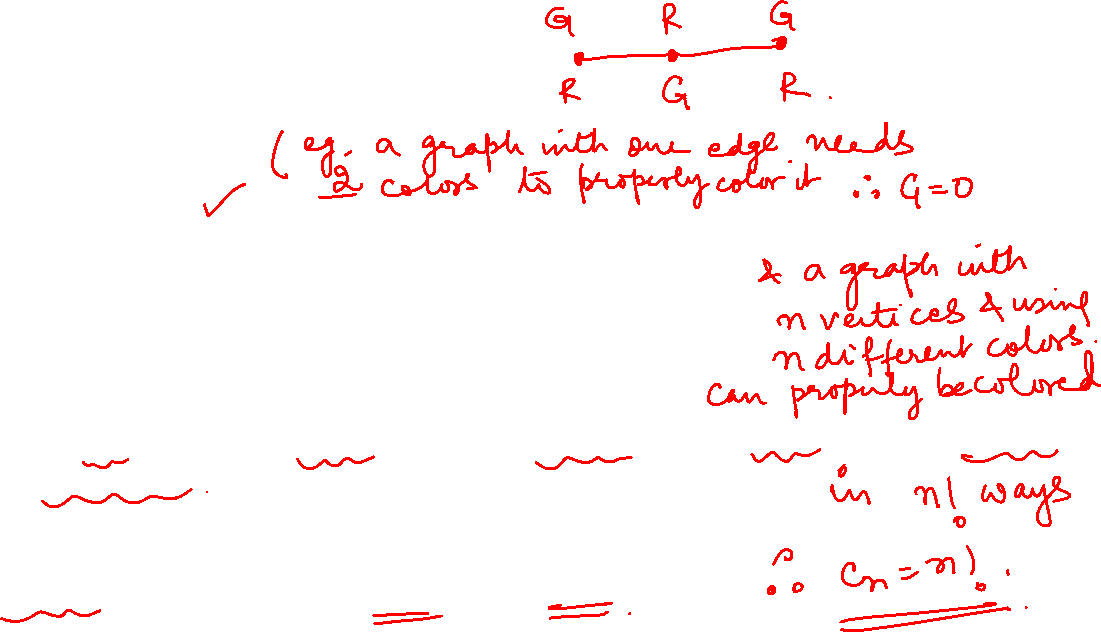 G R G
R G R.
(eg. a graph with one edge needs
2 colors to properly color it ∴ C₁=0
& a graph with
n vertices & using
n different colors.
can properly be colored
in n! ways
∴ Cn = n!.